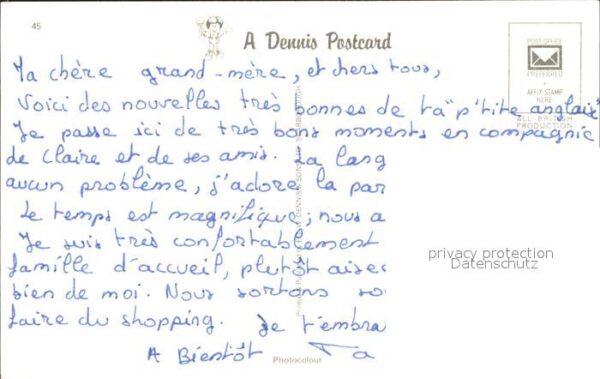 45
A Dennis Postcard
POST OFFICE
PREFERRED
AFFIX STAMP
HERE
ALL BRITISH
PRODUCTION
Ma chère grand-mère, et chers tous,
Voici des nouvelles très bonnes de ta "p'tite anglaise"
Je passe ici de très bons moments en compagnie
de Claire et de ses amis. La lang
aucun problème, j'adore la par
Le temps est magnifique; nous a
Je suis très confortablement
famille d'accueil, plutôt aisée
bien de moi. Nous sortons so
faire du shopping. Je t'embra
A Bientôt Ta
Photocolour
privacy protection
Datenschutz